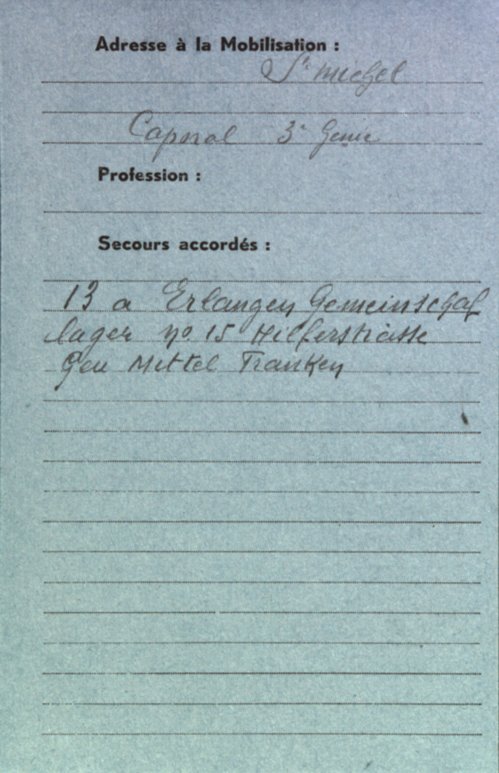 Adresse à la Mobilisation :
St michel
Caporal 3e Genie
Profession :
Secours accordés :
13 a Erlangen Gemeinschaf
lager no 15
Mittel Franken